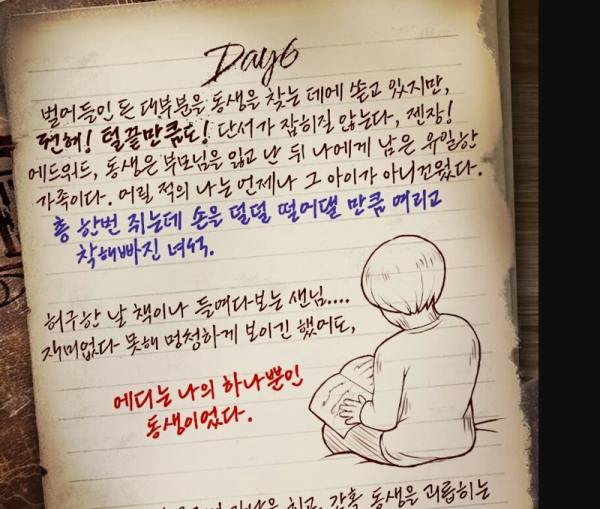 Day6
벌어들인 돈 대부분을 동생을 찾는 데에 쏟고 있지만,
전혀! 털끝만큼도! 단서가 잡히질 않는다, 젠장!
에드워드, 동생은 부모님을 잃고 난 뒤 나에게 남은 유일한
가족이다. 어릴 적의 나는 언제나 그 아이가 아니꼬웠다.
총 한번 쥐는데 손을 덜덜 떨어댈 만큼 여리고
착해빠진 녀석.
허구한 날 책이나 들여다보는 샌님....
재미없다 못해 멍청하게 보이긴 했어도,
에디는 나의 하나뿐인
동생이었다.
간혹 동생을 괴롭히는